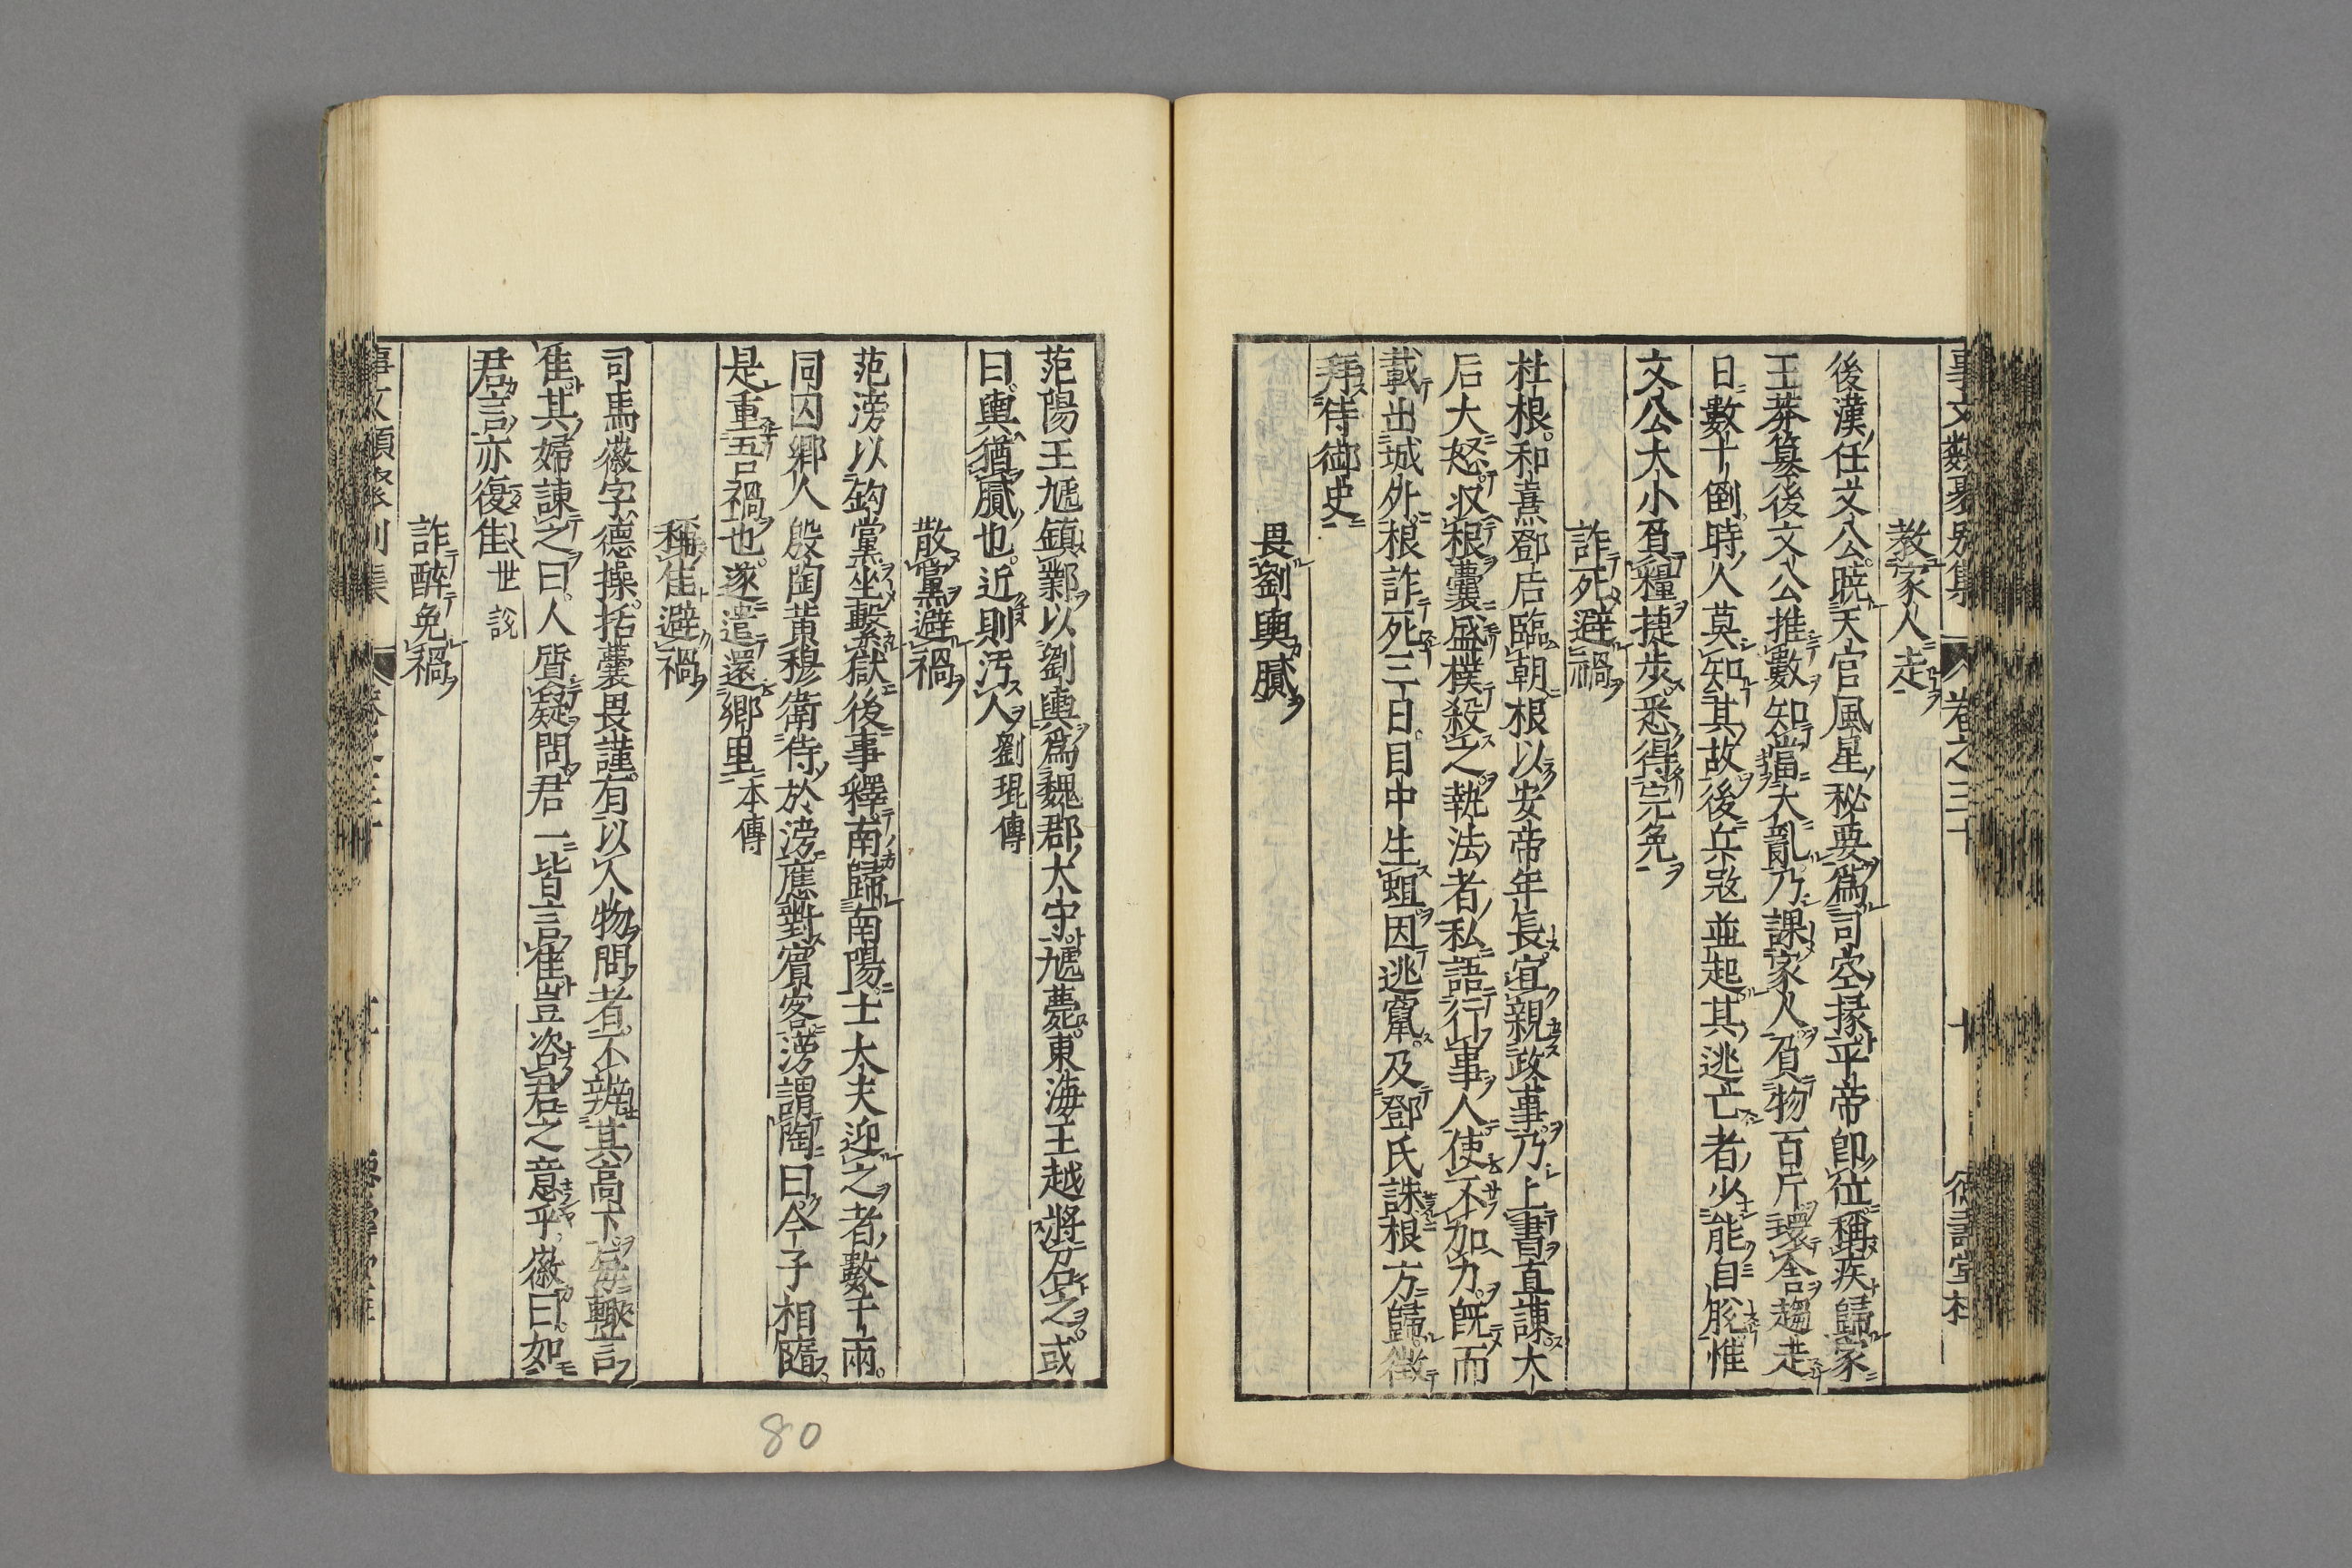 事文類聚別集 卷之三十 十 德壽堂梓
教家人走
後漢任文公。既天官風星秘要爲司空掾平帝卽位稱疾歸家
王莽篡後文公推數知當大亂乃課家人負物百斤環舍趨走
日數十倒。時人莫知其故後兵㓂並起其逃亡者少能自脫惟
文公大小負糧捷步悉得完免
詐死避禍
杜根。和熹鄧后臨朝根以安帝年長宜親政事。乃上書直諫。大
后大怒。收根囊盛撲殺之。執法者私語行事人使不加力。旣而
載出城外。根詐死三日。目中生蛆因逃竄。及鄧氏誅根方歸。徵
拜侍御史
畏劉輿膩
范陽王虓鎮鄴以劉輿爲魏郡大守。虓薨。東海王越將召之。或
曰。輿猶膩也。近則汚人劉琨傳
散黨避禍
范滂以鈎黨坐繫獄後事釋南歸南陽士大夫迎之者數千兩。
同囚鄉人殷陶黃穆衛侍於滂應對賓客滂謂陶曰。今子相隨。
是重吾禍也。遂遣還鄉里本傳
稱佳避禍
司馬徽字德操。括囊畏謹。有以人物問者。不辨其高下每輙言
佳。其婦諫之曰。人質疑問君一皆言佳。豈咨君之意乎。徽曰。如
君言亦復佳世說
詐醉免禍
事文類聚別集
80